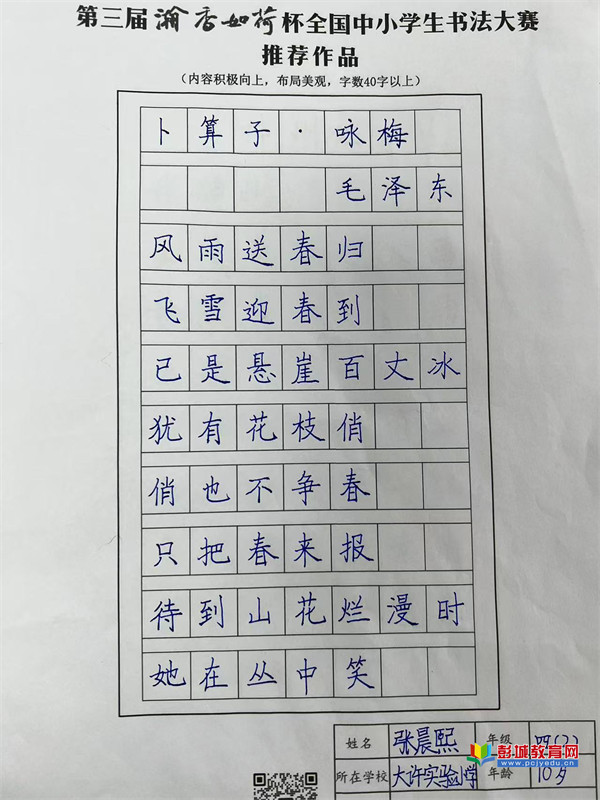 第三届瀚香如荷杯全国中小学生书法大赛
推荐作品
（内容积极向上，布局美观，字数40字以上）
卜算子·咏梅
毛泽东
风雨送春归
飞雪迎春到
已是悬崖百丈冰
犹有花枝俏
俏也不争春
只把春来报
待到山花烂漫时
她在丛中笑
姓名 张晨熙 年级 四(2)
所在学校 大许实验小学 年龄 10岁
彭城教育网
www.pcjyedu.cn